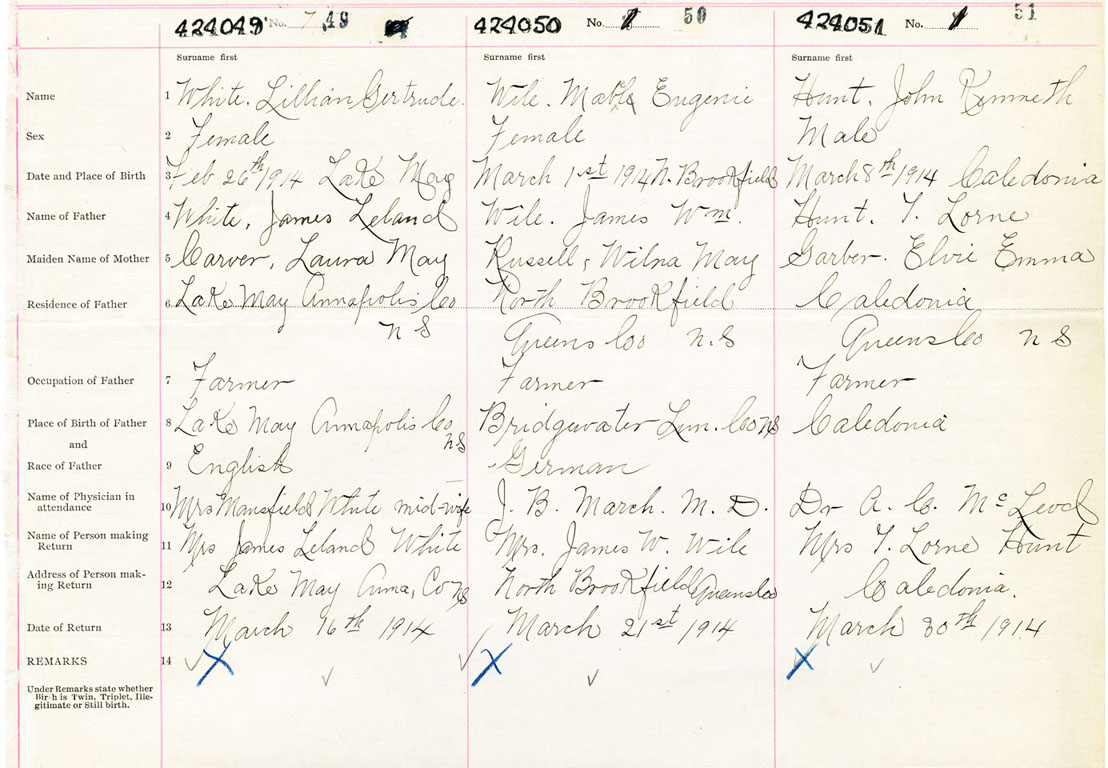 424049 No. 7 49
424050 No. 50
424051 No. 51
Surname first Surname first Surname first
Name 1 White. Lillian Gertrude. Wile. Mable Eugenie Hunt. John Kenneth
Sex 2 Female Female Male
Date and Place of Birth 3 Feb 26th 1914 Lake May March 1st 1914 N. Brookfield March 8th 1914 Caledonia
Name of Father 4 White, James Leland Wile. James Wm. Hunt. T. Lorne
Maiden Name of Mother 5 Carver, Laura May Russell, Wilna May Garber. Elvie Emma
Residence of Father 6 Lake May Annapolis Co North Brookfield Caledonia
N S Queens Co N.S Queens Co N S
Occupation of Father 7 Farmer Farmer Farmer
Place of Birth of Father 8 Lake May Annapolis Co Bridgewater Lun. Co NS Caledonia
NS
and
Race of Father 9 English German
Name of Physician in
attendance 10 Mrs Mansfield White mid-wife J. B. March. M. D. Dr A. C. McLeod
Name of Person making
Return 11 Mrs James Leland White Mrs. James W. Wile Mrs T. Lorne Hunt
Address of Person mak-
ing Return 12 Lake May Anna, Co NS North Brookfield Queens Co Caledonia.
Date of Return 13 March 16th 1914 March 21st 1914 March 30th 1914
REMARKS 14 X X X
Under Remarks state whether
Birth is Twin, Triplet, Ille-
gitimate or Still birth.